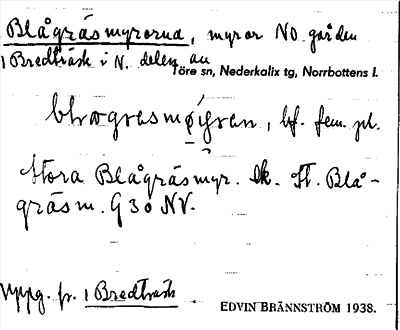 Blågräsmyrorna, myror NO. gården
1 Bredträsk i N. delen av
Töre sn, Nederkalix tg, Norrbottens l.
bf. fem. pl.
Stora Blågräsmyr. Ek. St. Blå-
gräsm. G 30 NV.
Uppg. fr. 1 Bredträsk
EDVIN BRÄNNSTRÖM 1938.